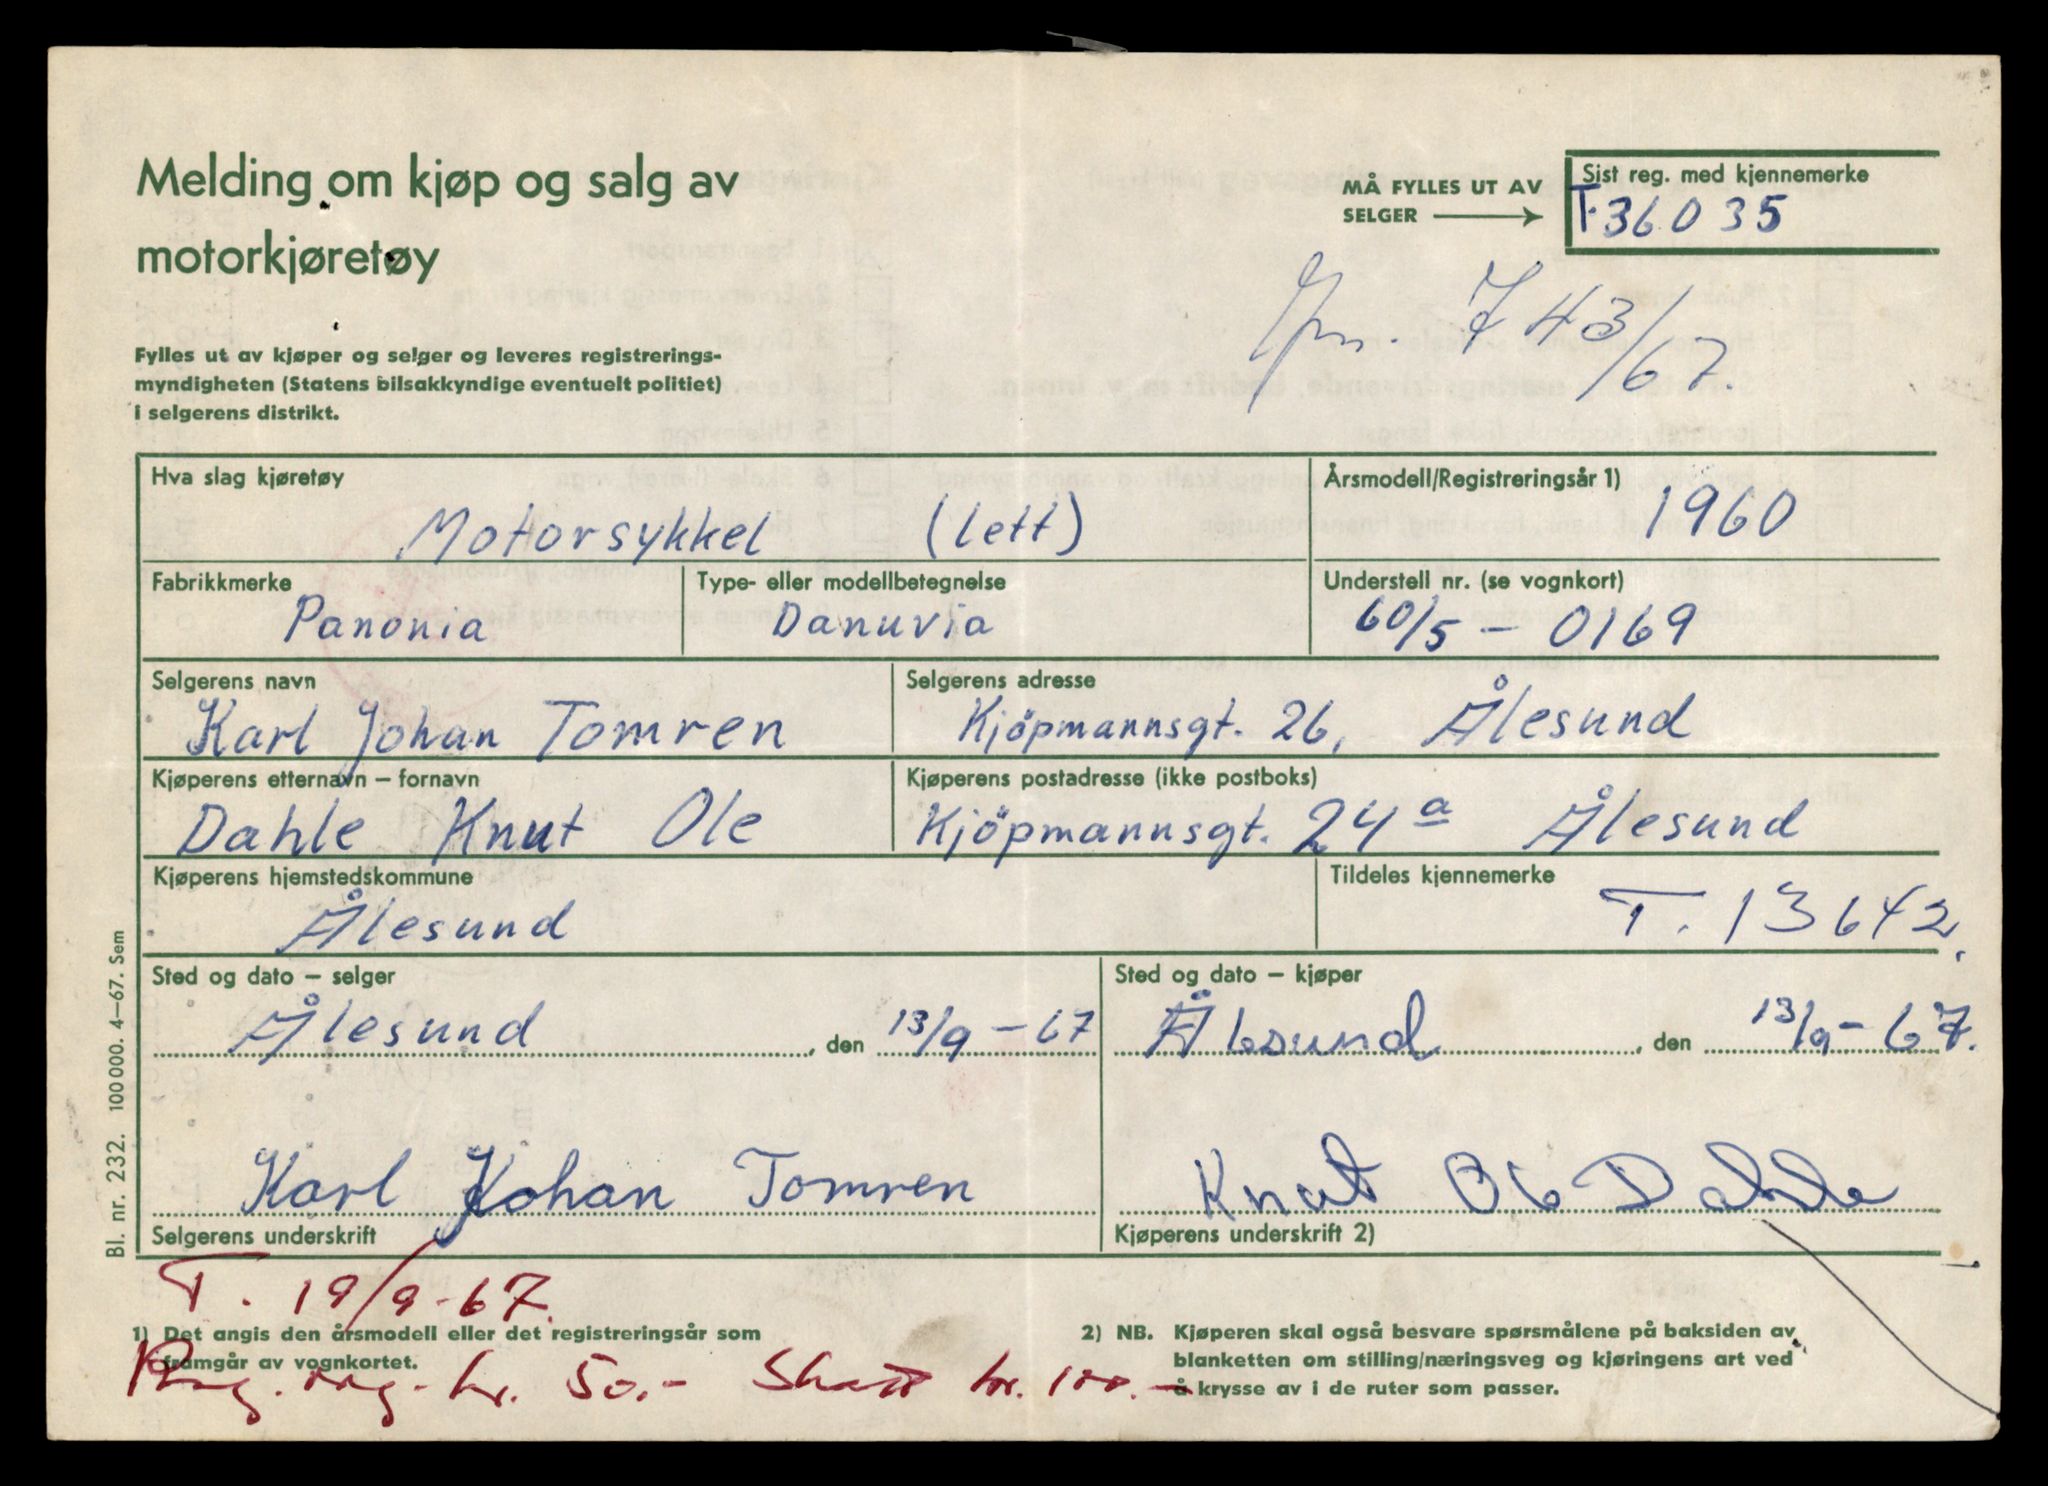 Melding om kjøp og salg av
motorkjøretøy
MÅ FYLLES UT AV
SELGER
Sist reg. med kjennemerke
T-36035
Jnr. 743/67.
Fylles ut av kjøper og selger og leveres registrerings-
myndigheten (Statens bilsakkyndige eventuelt politiet)
i selgerens distrikt.
Hva slag kjøretøy
Motorsykkel (lett)
Årsmodell/Registreringsår 1)
1960
Fabrikkmerke
Panonia
Type- eller modellbetegnelse
Danuvia
Understell nr. (se vognkort)
60/5 – 0169
Selgerens navn
Karl Johan Tomren
Selgerens adresse
Kjöpmannsgt. 26, Ålesund
Kjøperens etternavn – fornavn
Dahle Knut Ole
Kjøperens postadresse (ikke postboks)
Kjöpmannsgt. 24a Ålesund
Kjøperens hjemstedskommune
Ålesund
Tildeles kjennemerke
T. 13642.
Sted og dato – selger
Ålesund, den 13/9 – 67
Sted og dato – kjøper
Ålesund, den 13/9 – 67.
Karl Johan Tomren
Selgerens underskrift
Knut Ole Dahle
Kjøperens underskrift 2)
Bl. nr. 232. 100 000. 4–67. Sem
T. 19/9-67.
1) Det angis den årsmodell eller det registreringsår som
framgår av vognkortet.
kr. 50.- Skatt kr. 100.-
2) NB. Kjøperen skal også besvare spørsmålene på baksiden av
blanketten om stilling/næringsveg og kjøringens art ved
å krysse av i de ruter som passer.